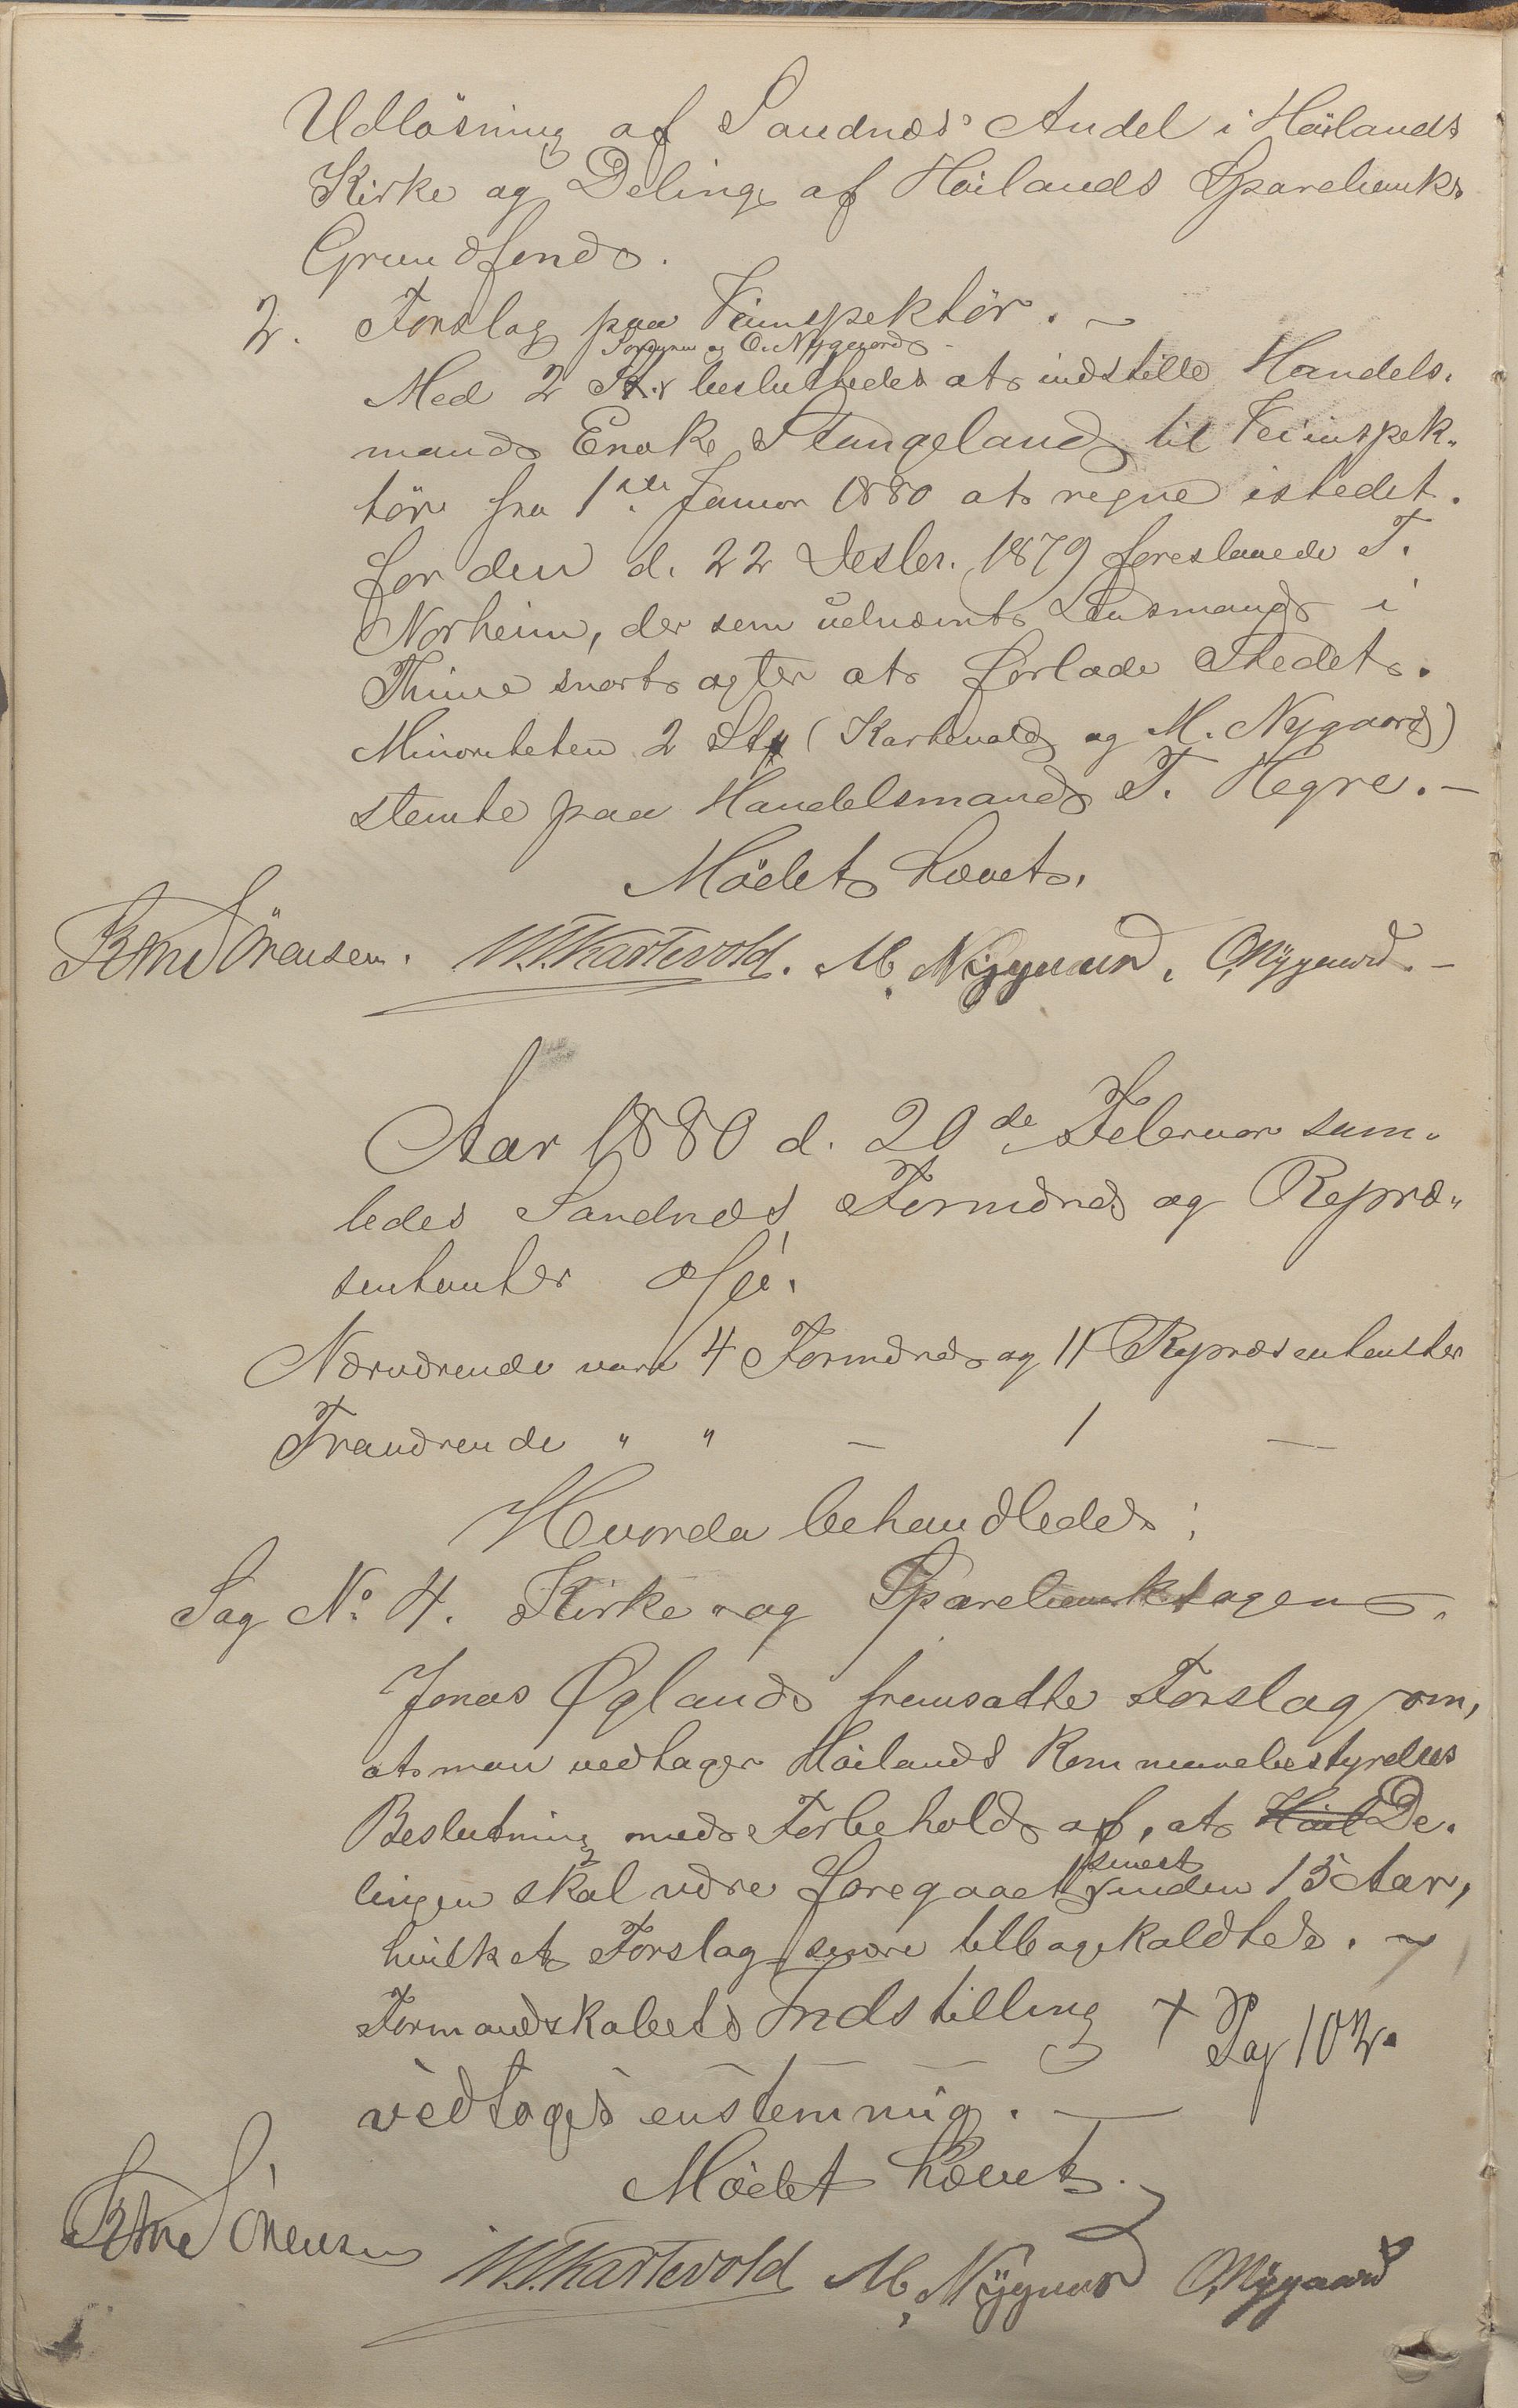 Udløsning af Sandnæs Andel i Høilands
Kirke og Deling af Høilands Sparebanks
Grundfond.
2. Forslag paa Veiinspektør. —
Sørensen og O. Nygaard
Med 2 St. besluttedes at indstille Handels-
mand Enok Stangeland til Veiinspek-
tør fra 1ste Januar 1880 at regne istedet-
for den d. 22 Desbr. 1879 foreslaaede T.
Norheim, der som udnævnt Lensmand i
Thime snart agter at forlade Stedet.
Minoriteten 2 St. (Kartevold og M. Nygaard)
stemte paa Handelsmand T. Hegre. —
Mødet hævet.
Sørensen. W. Kartevold. M. Nygaard. O. Nygaard. —
Aar 1880 d. 20de Februar sam-
ledes Sandnæs Formænd og Repræ-
sentanter
Nærværende vare 4 Formænd og 11 Repræsentanter
Fraværende " " — 1 —
Hvorda behandledes:
Sag No. 4. Kirke- og Sparebanksagen.
Jonas Øgland fremsatte Forslag om,
at man vedtager Høilands Kommunebestyrelses
Beslutning med Forbehold af, at Høil De-
lingen skal være foregaaet senest inden 15 Aar,
hvilket Forslag senere tilbagekaldtes. —
Formandskabets Indstilling + Pag 102.
vedtoges enstemmig. —
Mødet hævet.
Sørensen W. Kartevold M. Nygaard O. Nygaard